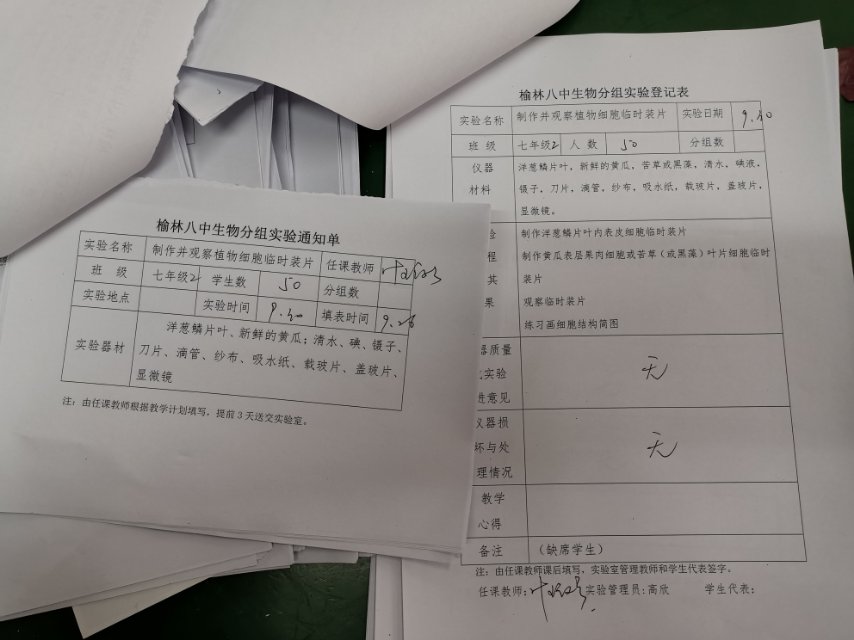 榆林八中生物分组实验通知单
实验名称 制作并观察植物细胞临时装片 任课教师
班 级 七年级2 学生数 50 分组数
实验地点 实验时间 9.30 填表时间 9.26
实验器材 洋葱鳞片叶、新鲜的黄瓜;清水、碘、镊子、
刀片、滴管、纱布、吸水纸、载玻片、盖玻片、
显微镜
注:由任课教师根据教学计划填写,提前3天送交实验室。
榆林八中生物分组实验登记表
实验名称 制作并观察植物细胞临时装片 实验日期 9.30
班 级 七年级2 人 数 50 分组数
仪器 洋葱鳞片�,新鲜的黄瓜,苦草或黑藻,清水,碘液,
材料 镊子,刀片,滴管,纱布,吸水纸,载玻片,盖玻片,
显微镜。
验 制作洋葱鳞片叶内表皮细胞临时装片
程 制作黄瓜表层果肉细胞或苦草(或黑藻)叶片细胞临时
其 装片
果 观察临时装片
练习画细胞结构简图
器质量
实验 无
进意见
仪器损
坏与处 无
理情况
教学
心得
备注 (缺席学生)
注:由任课教师课后填写,实验室管理教师和学生代表签字。
任课教师: 实验管理员:高欣 学生代表: